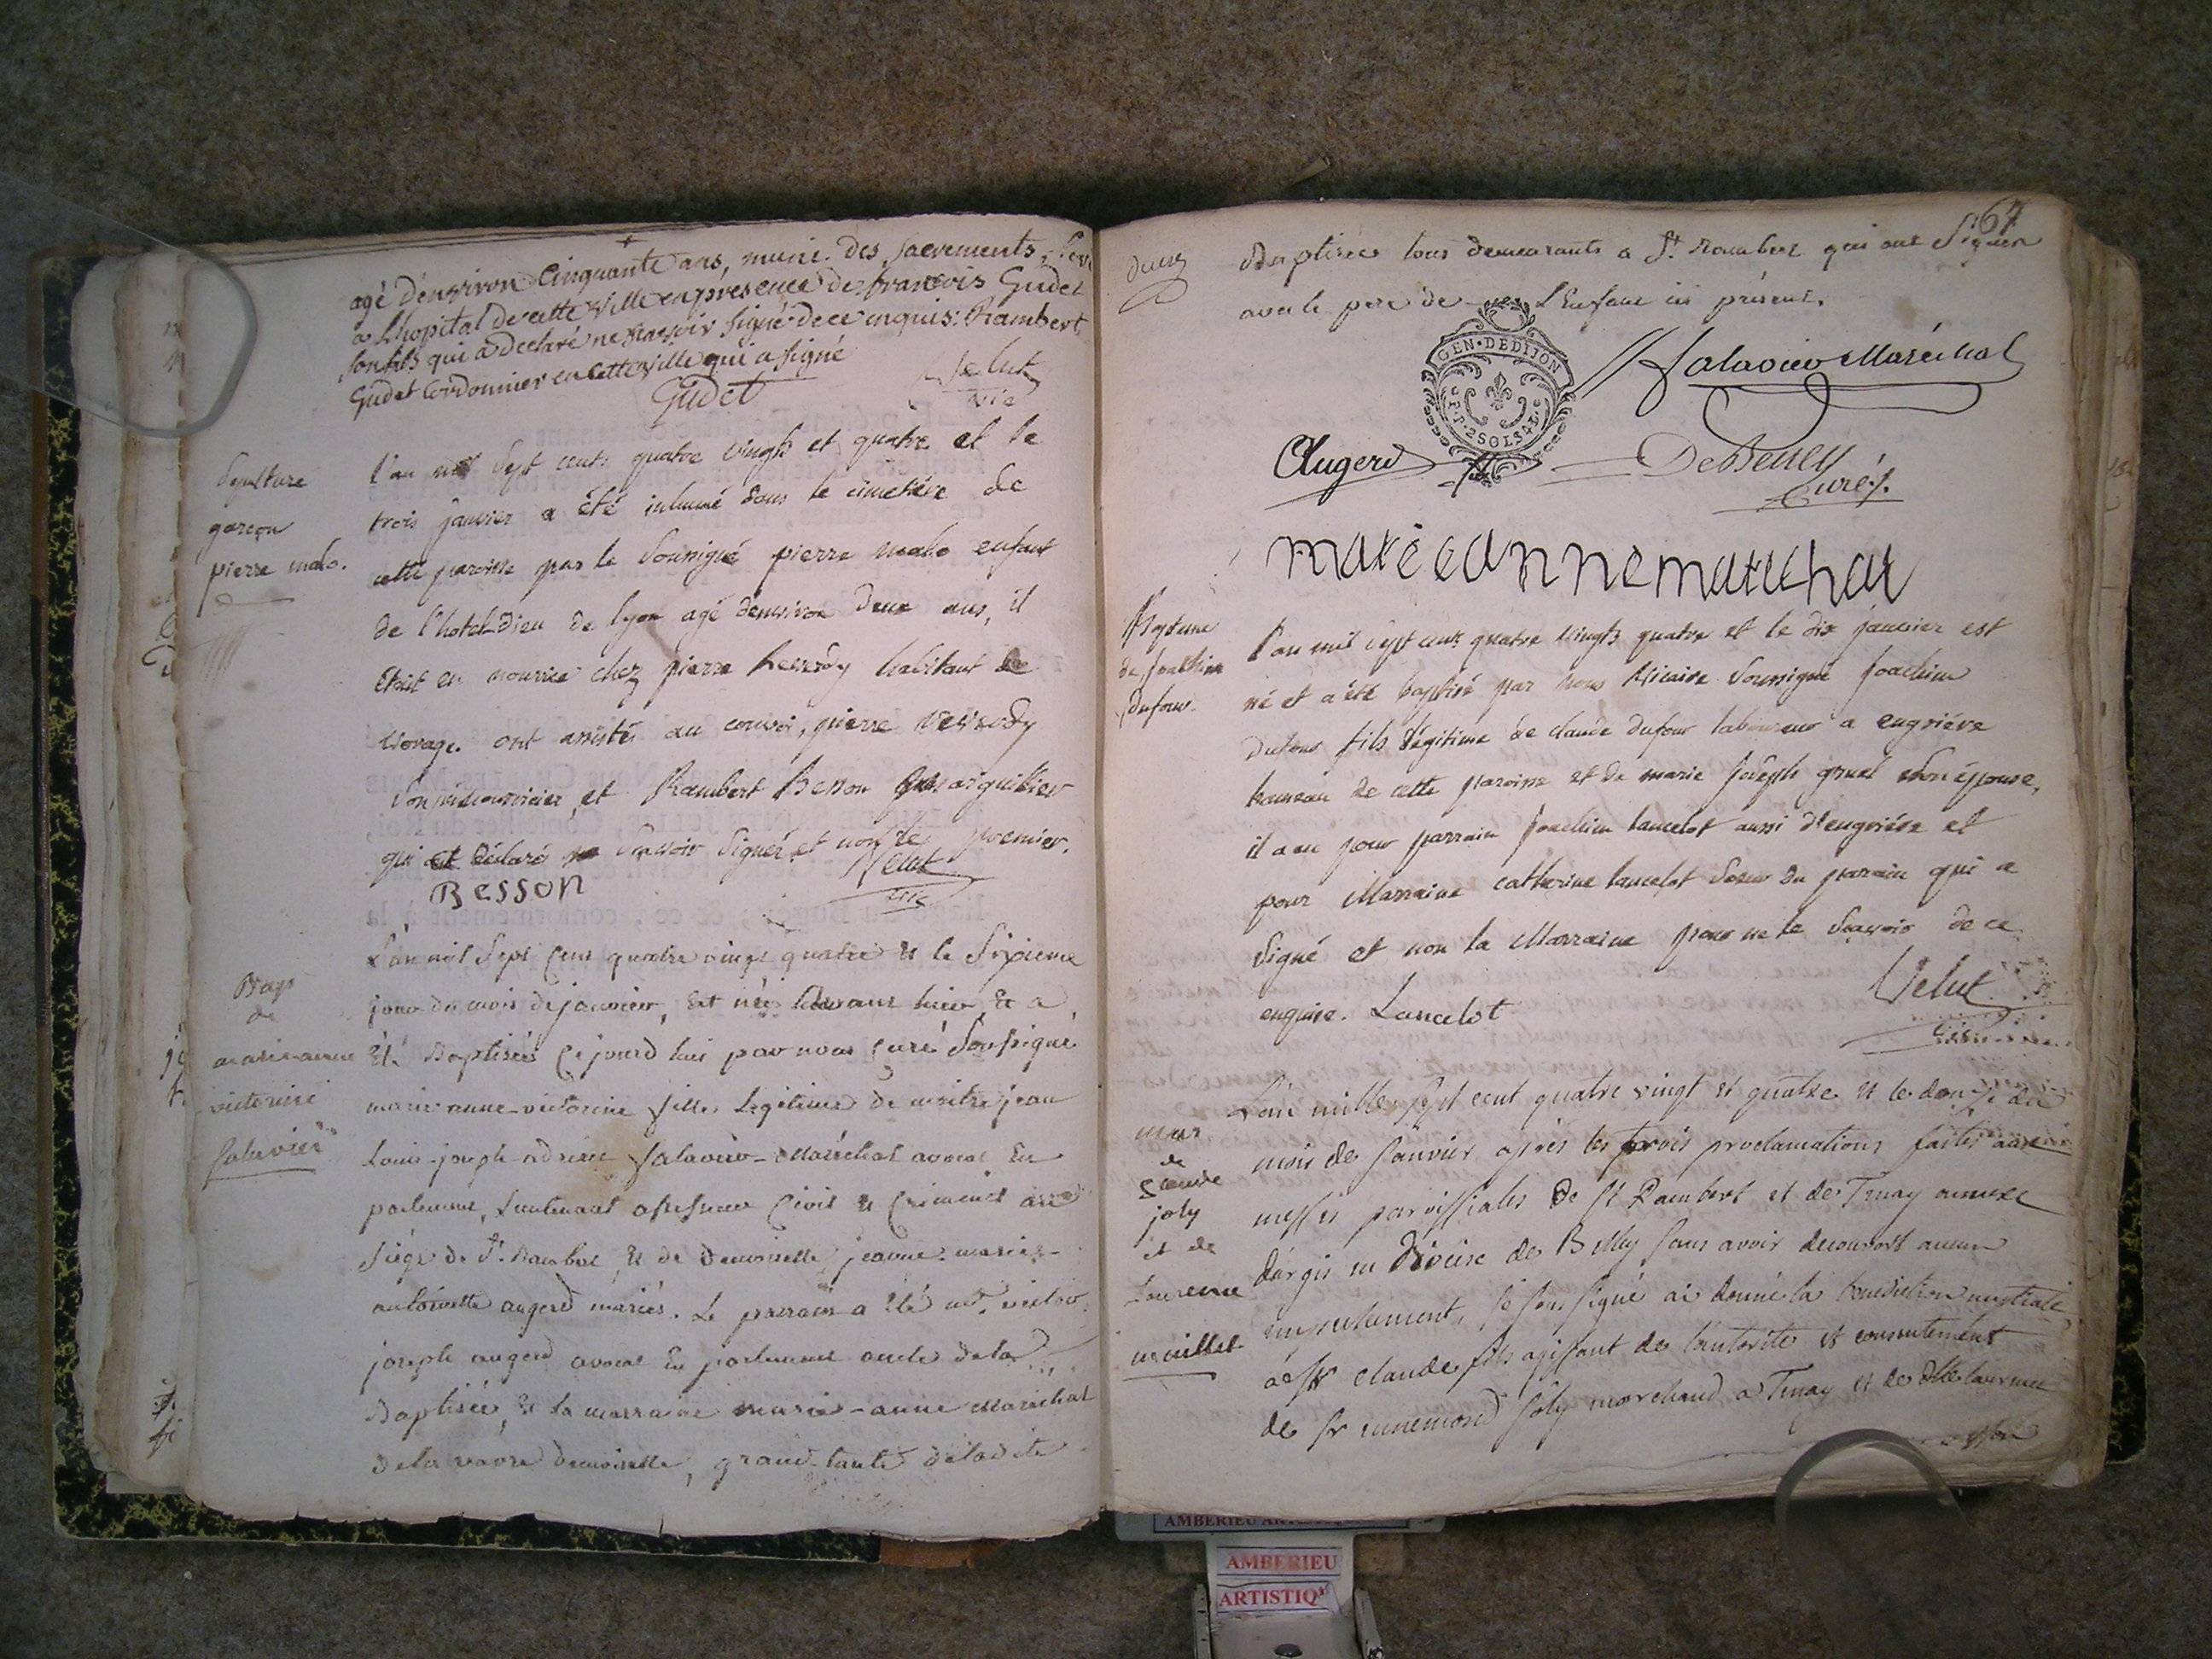 agé d'environ Cinquante ans, muni des Sacrements,
a L'hopital de cette Ville en presence de francois Gudet
son fils qui a declaré ne Scavoir signé de ce enquis: Rambert
Gudet Cordonnier en cette ville qui a signé
Gudet
Velut
vic
Sepulture
garçon
pierre malo.
l'an mil Sept cents quatre vingts et quatre et le
trois janvier a été inhumé dans le cimetiére de
cette paroisse par le Soussigné pierre malo enfant
de l'hotel-Dieu de lyon agé d'environ deux ans, il
etoit en nourrice chez pierre habitant de
ont assistés au convoi, pierre
son nourricier, et Rambert Besson
qui et déclaré Scavoir Signér et non le premier.
Besson
Velut
vic
Bap
de
marie-anne
victorine
Salavier
L'an mil Sept Cent quatre vingt quatre & le Sixieme
jour du mois de janvier, Est née avant hier, & a
Eté Baptisée Cejourd'hui par nous curé Soussigné
marie anne-victorine fille Legitime de maitre jean
Louis-joseph-adrien Salavier-Maréchal avocat En
parlement, Lieutenant assesseur Civil & Criminel au
Siége de St. Rambert, & de Demoiselle jeanne-marie-
antoinette augerd mariés. Le parrain a été mr. victor
joseph augerd avocat En parlement oncle dela
Baptisée, & la marraine marie-anne Maréchal
dela vavre Demoiselle, grand-tante deladite
64
Baptisée tous demeurants a St. Rambert qui ont Signés
avec le pere de L'Enfant ici présent.
GEN·DE DIJON
2 SOLS 4 D
Salavier Maréchal
Augerd
Debeney
Curé
marieannemarechal
Bapteme
de Joachim
dufour
l'an mil sept cent quatre vingts quatre et le dix janvier est
né et a été baptisé par nous Vicaire Soussigné Joachim
Dufour fils légitime de claude dufour laboureur a engriéve
hameau de cette paroisse et de marie Joseph gruel son épouse,
il a eu pour parrain Joachim lancelot aussi d'engriéve et
pour Marraine catherine lancelot Soeur du parain qui a
Signé et non la Marraine pour ne le Sçavoir de ce
enquise. Lancelot
Velut
mar
de
Claude
joly
et de
Laurence
millet
L'an mille sept cent quatre vingt & quatre & le douze du
mois de Janvier après les trois proclamations faites aux
messes paroissiales de St Rambert et de Tenay annexe
d'argis en Diocese de Belley sans avoir decouvert aucun
empechement, je soussigné ai donné la benediction nuptiale
à Sr Claude fils agissant de l'autorité & consentement
de Sr ennemond Joly marchand a Tenay & de dlle laurence
AMBERIEU
AMBERIEU
ARTISTIQ